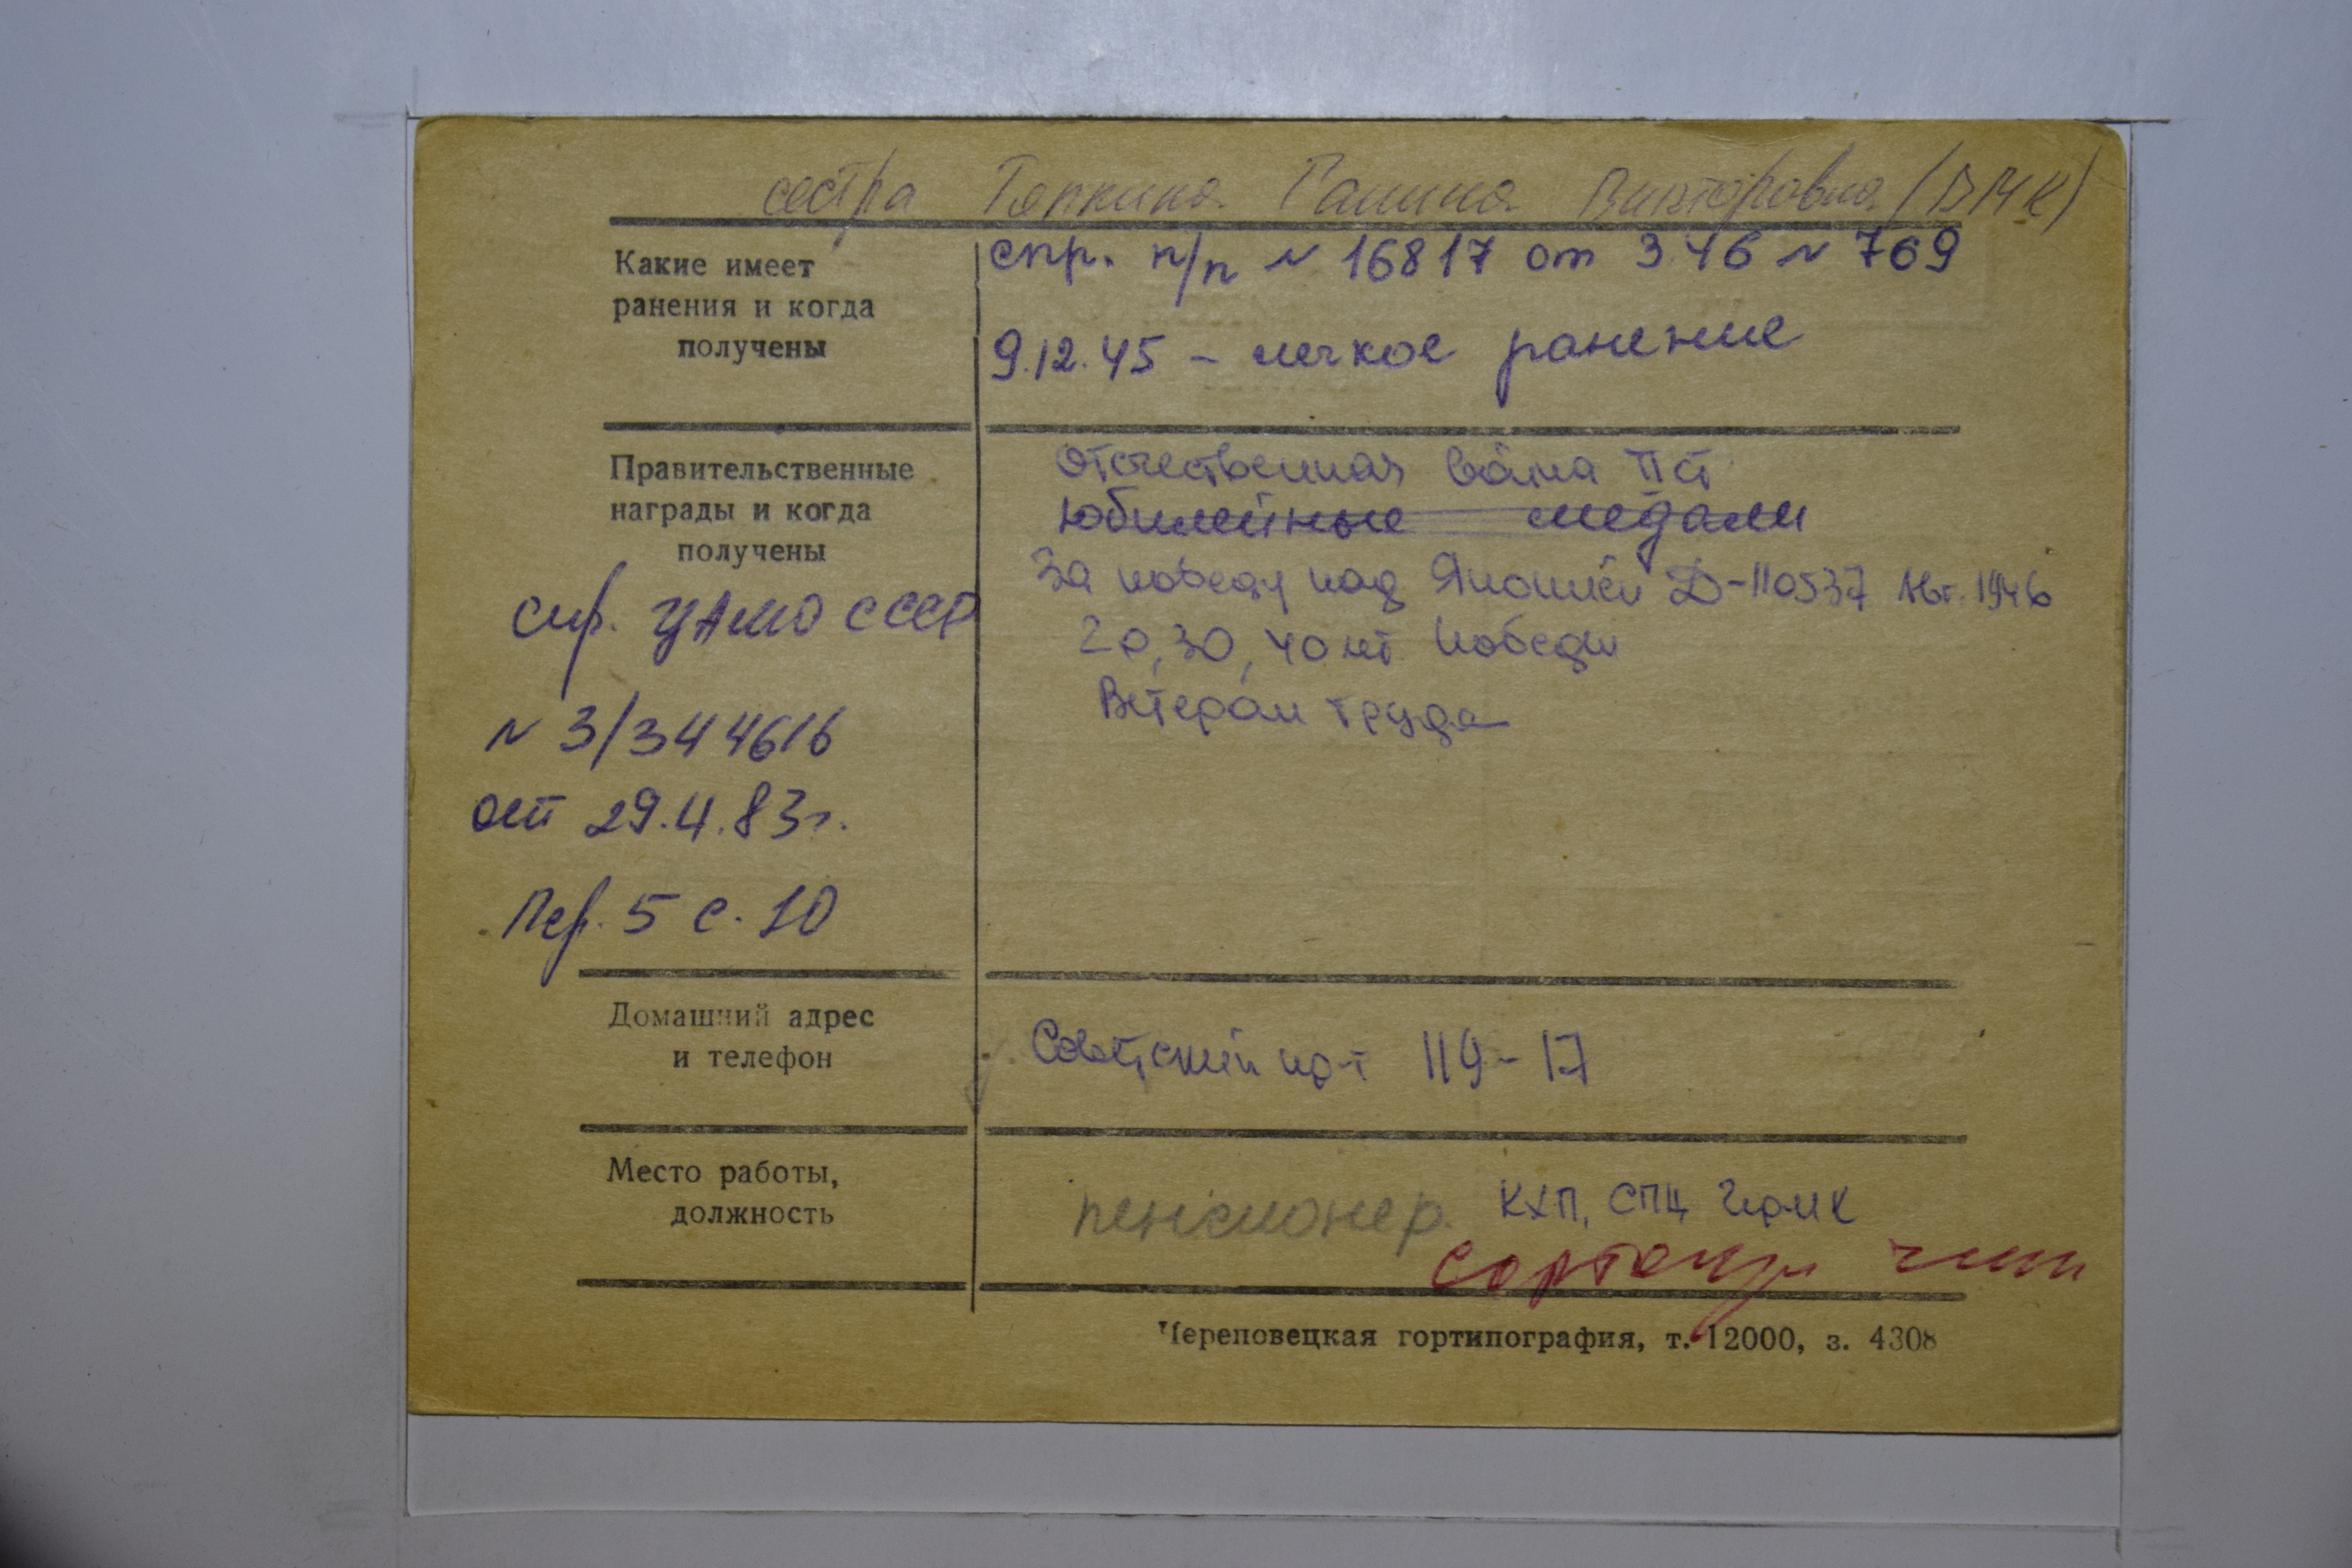 сестра Тяпкина Галина Викторовна (ВМК)
Какие имеет
ранения и когда
получены
спр. п/п N 16817 от 3.46 N 769
9.12.45 - легкое ранение
Правительственные
награды и когда
получены
Отечественная война II ст
юбилейные медали
За победу над Японией Д-110537 1946
20, 30, 40 лет Победы
Ветеран труда
спр. ЦАМО СССР
N 3/344616
от 29.4.83г.
Пер. 5 с. 10
Домашний адрес
и телефон
Советский пр-т 119-17
Место работы,
должность
пенсионер. КХП, СПЦ ЧерМК
Череповецкая гортипография, т. 12000, з. 4308